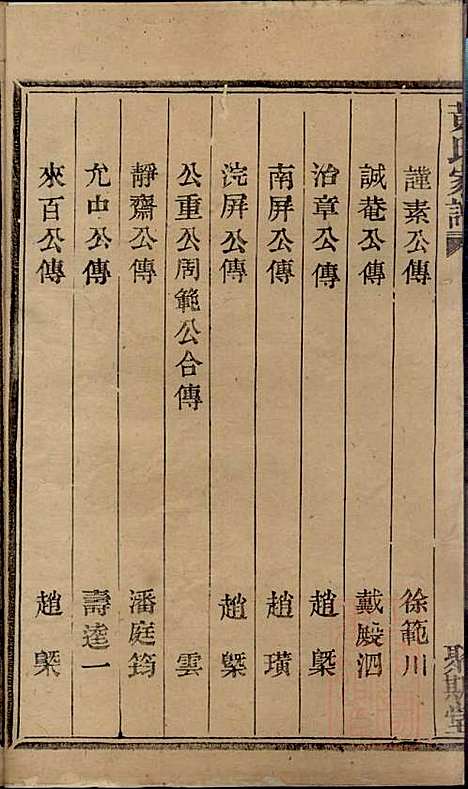 黃氏家譜
聚斯堂
謹素公傳 徐範川
誠菴公傳 戴殿泗
治章公傳 趙檠
南屏公傳 趙璜
浣屏公傳 趙檠
公重公周範公合傳 雲
靜齋公傳 潘庭筠
允中公傳 壽達一
來百公傳 趙檠